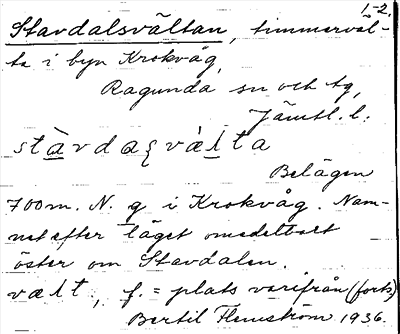 1.-2.
Stavdalsvältan, timmerväl-
ta i byn Krokvåg,
Ragunda sn och tg,
Jämtl. l.:
stàvdaʃvàlta
Belägen
700 m. N. g i Krokvåg. Nam-
net efter läget omedelbart
öster om Stavdalen.
vælt, f. = plats varifrån (forts.)
Bertil Flemström 1936.